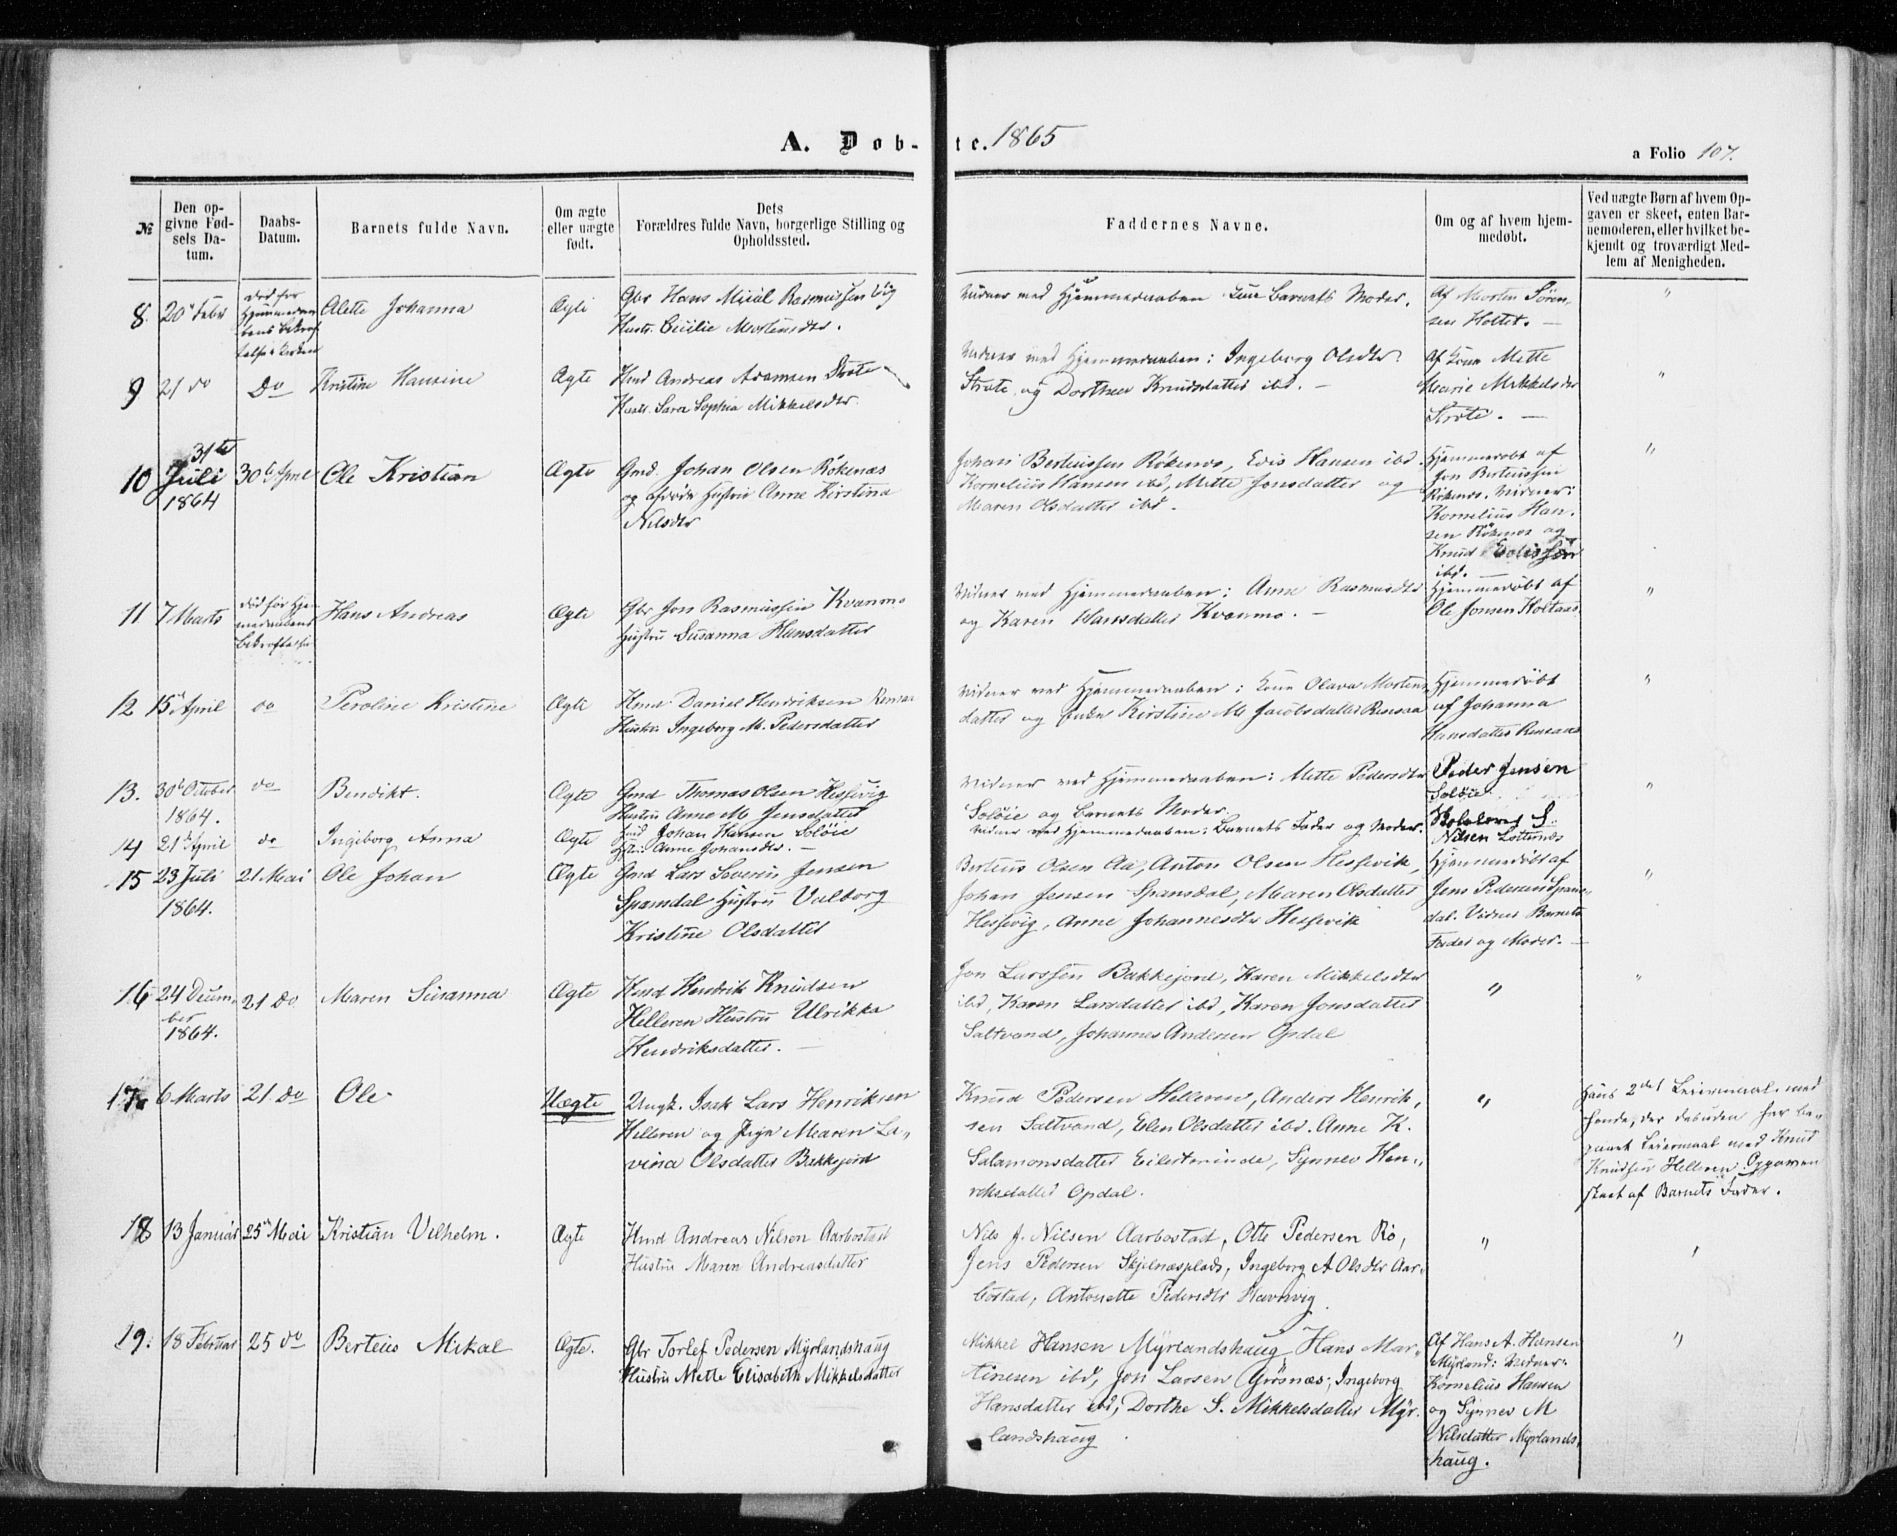 A. Døb-te. 1865
a Folio 107.
№
Den opgivne Fødsels Datum.
Daabs-Datum.
Barnets fulde Navn.
Om ægte eller uægte født.
Dets Forældres fulde Navn, borgerlige Stilling og Opholdssted.
Faddernes Navne.
Om og af hvem hjemmedøbt.
Ved uægte Børn af hvem Opgaven er skeet, enten Barnemoderen, eller hvilket bekjendt og troværdigt Medlem af Menigheden.
8. 20de Febr
død før Hjemmedaabens Bekræftelse i Kirken
Alette Johanna
Ægte
Gbr Hans Rasmussen
Hustr. Cecilie Mortensdtr.
Vidner ved Hjemmedaaben Barnets Moder.
Af Morten Sørensen Holtet. —
"
9 21 do
Do
Kristine Hansine
Ægte
Hmd Andreas Aramsen Strøte
Hustr. Sara Sophia Mikkelsdtr.
Vidner ved Hjemmedaaben: Ingeborg Olsdtr
Strøte, og Dorthea Knudsdatter ibd. —
Af Kone Mette
Marie Mikkelsdtr
Strøte. —
"
10 31te Juli 1864
30te April
Ole Kristian
Ægte
Gmd. Johan Olsen Røkenæs
og afdøde Hustru Anne Kirstina
Nilsdtr
Johan Berteussen Røkenæs, Edis Hansen ibd.
Kornelius Hansen ibd, Mette Jonsdatter og
Maren Olsdatter ibd.
Hjemmedøbt af
Jon Berteussen
Røkenæs. Vidner:
Kornelius Hansen
Røkenæs og
Knud
ibd. —
"
11 7 Marts
død før Hjemmedaabens Bekræftelse
Hans Andreas
Ægte
Gbr Jon Rasmussen Kvanmo
Hustru Susanna Hansdatter
Vidner ved Hjemmedaaben: Anne Rasmusdtr
og Karen Hansdatter Kvanmo. —
Hjemmedøbt af
Ole Jonsen
"
12 15de April
do
Peroline Kristine
Ægte
Hmd Daniel Hendriksen Rensaa
Hustru Ingeborg M. Pedersdatter
Vidner ved Hjemmedaaben: Kone Olava Mortensdatter
og Kirstine M Jacobsdatter Rensaa
Hjemmedøbt
af Johanna
Hansdatter Rensaa
"
13. 30te October 1864.
do
Bendikt.
Ægte
Gmd Thomas Olsen Hessevig
Hustru Anne M Jensdatter
Vidner ved Hjemmedaaben: Mette Pedersdtr
Soløie og Barnets Moder.
Peder Jensen
Soløie
"
14 21de April
do
Ingeborg Anna
Ægte
Hmd Johan Hansen Soløie
Hstru Anne Johansdtr. —
Vidner ved Hjemmedaaben: Barnets Fader og Moder.
Skolelærer S.
Nilsen
15 23 Juli 1864.
21 Mai
Ole Johan
Ægte
Gmd Lars Severin Jensen
Spansdal Hustru Valborg
Kristine Olsdatter
Berteus Olsen Aa, Anton Olsen Hessevik,
Johan Jensen Spansdal, Maren Olsdatter
Hessevig, Anne Johannesdtr Hessevik
Hjemmedøbt af
Jens Pedersen Spansdal.
Vidner Barnets
Fader og Moder. —
"
16 24 December 1864.
21 Do
Maren Susanna
Ægte
Hmd Hendrik Knudsen
Helleren Hustru Ulrikka
Hendriksdatter. —
Jon Larssen Bakkejord, Karen Mikkelsdtr
ibd, Karen Larsdatter ibd, Karen Jonsdatter
Saltvand, Johannes Andersen Opdal
"
"
17. 6 Marts
21 do
Ole
Uægte
Ungk. Isak Lars Henriksen
Helleren og Pige Maren Lavina
Olsdatter Bakkejord
Knud Pedersen Helleren, Anders Henriksen
Saltvand, Elen Olsdatter ibd. Anne K.
Salamonsdatter, Synnev Henriksdatter
Opdal.
"
Hans 2det Leiermaal, med
hende, der desuden har begaaet
Leiermaal med Knud
Knudsen Helleren Opgaven
skeet af Barnets Fader.
18 13 Januar
25de Mai
Kristian Vilhelm.
Ægte
Hmd Andreas Nilsen Aarbostad
Hustru Maren Andreasdatter
Nils J. Nilsen Aarbostad, Otte Pedersen Rø,
Jens Pedersen Skjelnæsplads, Ingeborg A Olsdtr Aarbostad,
Antonette Pedersdtr Havnvig
"
"
19. 18 Februar
25 do
Berteus Mikal
Ægte.
Gbr Torlef Pedersen Myrlandshaug
Hustru Mette Elisabeth Mikkelsdatter
Mikkel Hansen Myrlandshaug Hans Martinesen
ibd, Jon Larsen Grøsnæs, Ingeborg
Hansdatter ibd, Dorthe S. Mikkelsdatter Myrlandshaug
Af Hans A. Hansen
Myrland: Vidner:
Kornelius Hansen
og Synnev M
Nilsdatter Myrlandshaug.
"